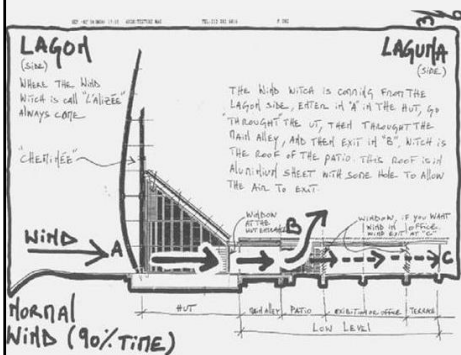 LAGON
(SIDE)
WHERE THE WIND
WITCH IS CALL "L'ALIZÉE"
ALWAYS COME
"CHEMINÉE"
LAGUNA
(SIDE)
THE WIND WITCH IS COMING FROM THE
LAGON SIDE, ENTER IN "A" IN THE HUT, GO
THROUGHT THE UT, THEN THROUGHT THE
MAIN ALLEY, AND THEN EXIT IN "B", WITCH IS
THE ROOF OF THE PATIO. THIS ROOF IS IN
ALUMINIUM SHEET WITH SOME HOLE TO ALLOW
THE AIR TO EXIT.
WINDOW
AT THE
HUT ENTRANCE
B
WINDOW, IF YOU WANT
WIND IN OFFICE.
WIND EXIT AT "C"
WIND
A
C
HUT
MAIN ALLEY
PATIO
EXHIBITION OR OFFICE
TERRACE
LOW LEVEL
NORMAL
WIND (90% TIME)